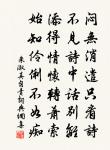 悶無消遣只看詩
不見詩中話別離
添得情懷轉蕭索
始知伶俐不如痴
朱淑真自責詩其二